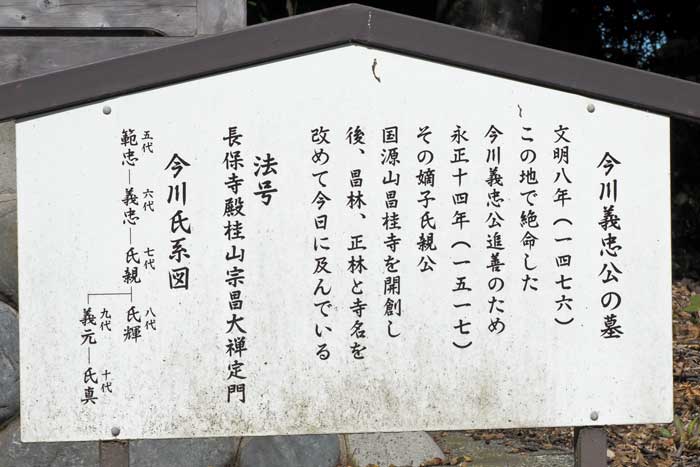 今川義忠公の墓
文明八年(一四七六)
この地で絶命した
今川義忠公追善のため
永正十四年(一五一七)
その嫡子氏親公
国源山昌桂寺を開創し
後、昌林、正林と寺名を
改めて今日に及んでいる
法号
長保寺殿桂山宗昌大禅定門
今川氏系図
五代 六代 七代
範忠―義忠―氏親
八代
氏輝
九代 十代
義元―氏真